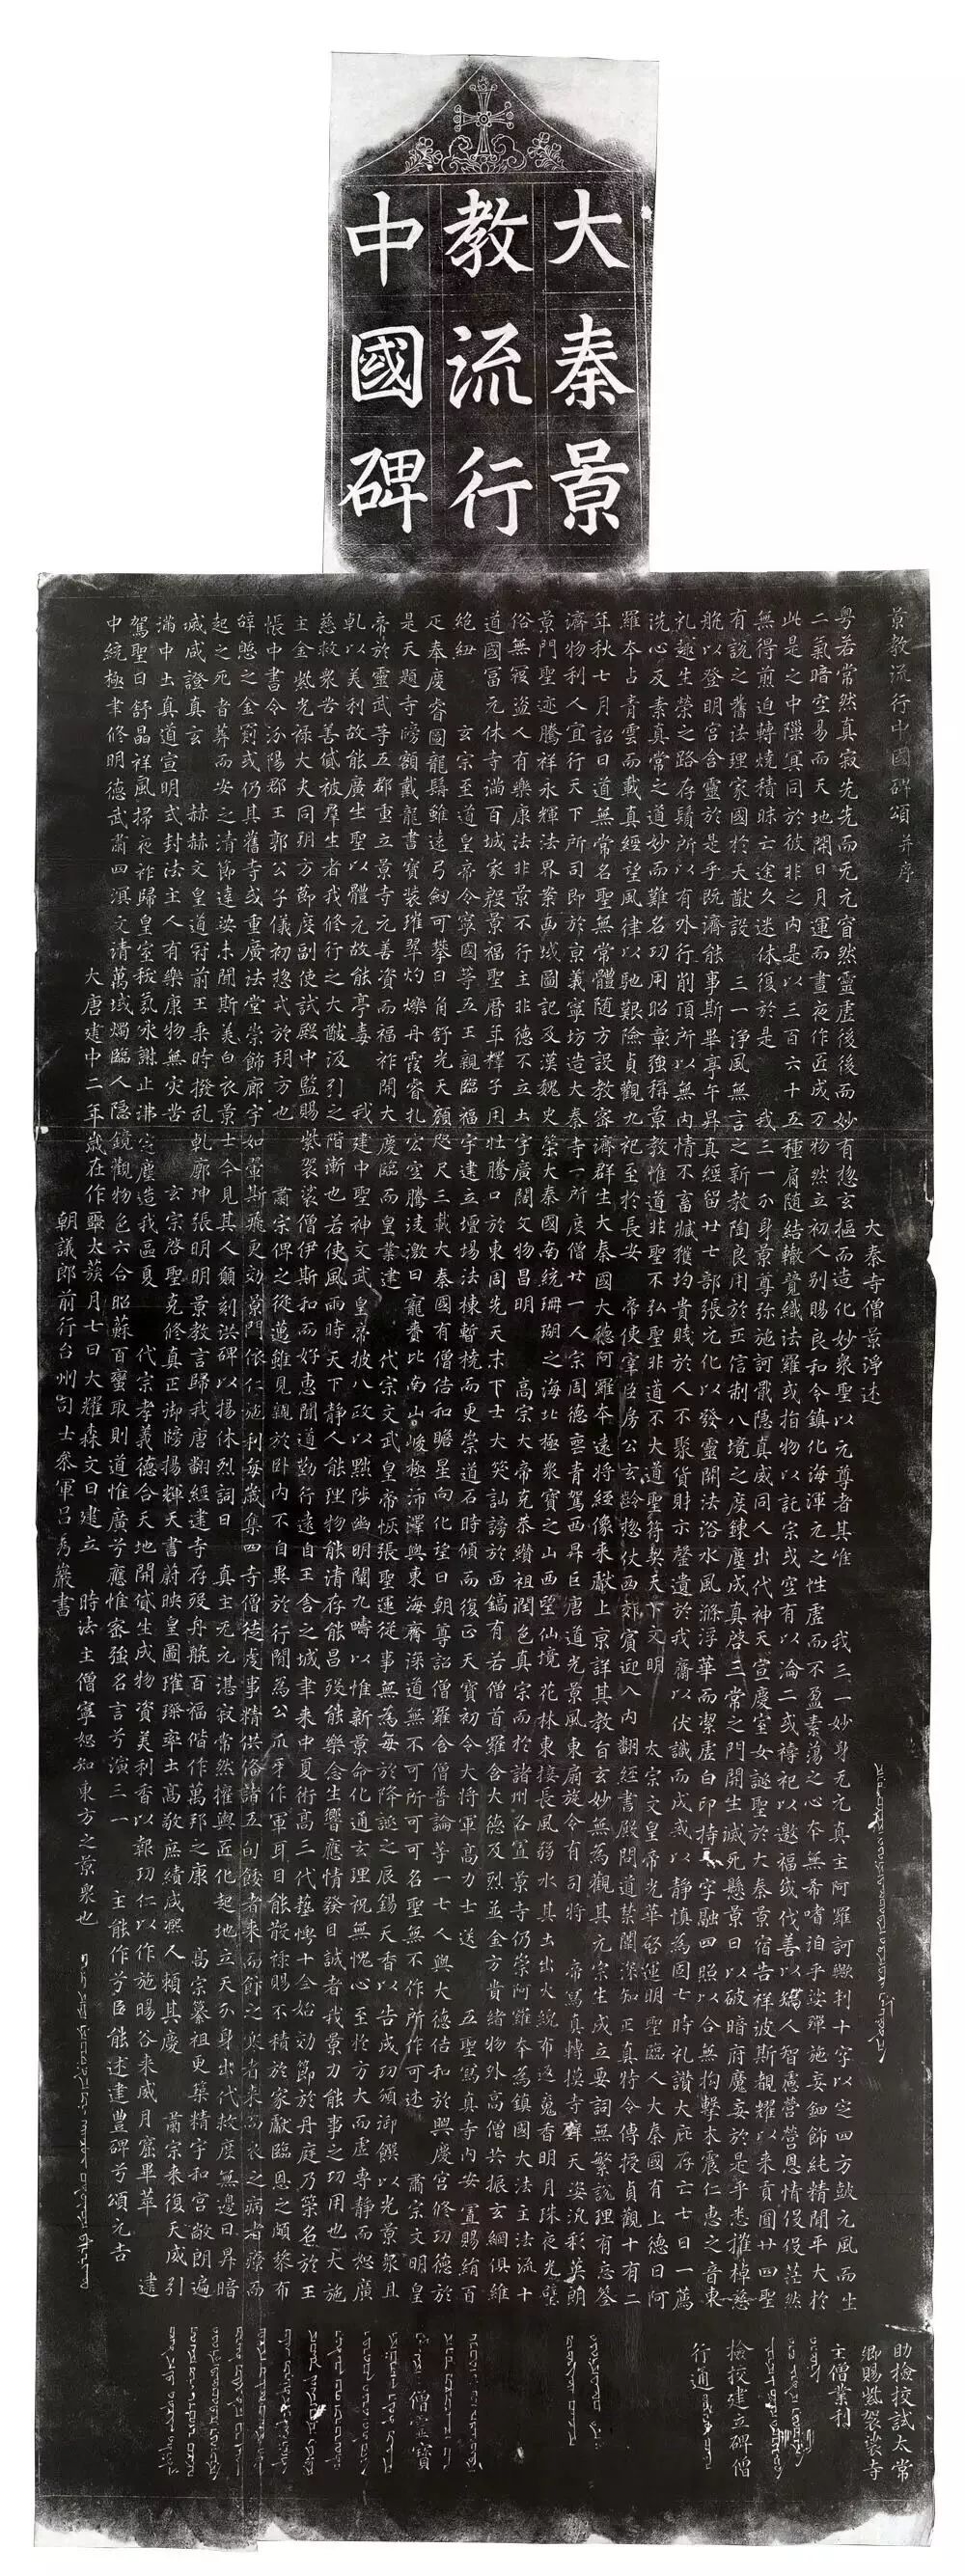 大秦景
教流行
中國碑
景教流行中國碑頌并序
大秦寺僧景淨述
粵若常然真寂先先而无元窅然靈虛後後而妙有惣玄摳而造化妙衆聖以元尊者其唯　我三一妙身无元真主阿羅訶歟判十字以定四方皷元風而生
二氣暗空易而天地開日月運而晝夜作匠成万物然立初人別賜良和令鎮化海渾元之性虛而不盈素蕩之心本無希嗜洎乎娑殫施妄鈿飾純精閒平大於
此是之中隟冥同於彼非之內是以三百六十五種肩隨結轍競織法羅或指物以託宗或空有以淪二或禱祀以邀福或伐善以矯人智慮營營恩情伇伇茫然
無得煎迫轉燒積昧亡途久迷休復於是　我三一分身景尊弥施訶戢隱真威同人出代神天宣慶室女誕聖於大秦景宿告祥波斯覩耀以来貢圓廿四聖
有說之舊法理家國於大猷設　三一淨風無言之新教陶良用於正信制八境之度鍊塵成真啓三常之門開生滅死懸景日以破暗府魔妄於是乎悉摧棹慈
航以登明宮含靈於是乎既濟能事斯畢亭午昇真經留廿七部張元化以發靈關法浴水風滌浮華而潔虛白印持十字融四照以合無拘擊木震仁惠之音東
礼趣生榮之路存鬚所以有外行削頂所以無內情不畜臧獲均貴賤於人不聚貨財示罄遺於我齋以伏識而成戒以靜慎為固七時礼讚大庇存亡七日一薦
洗心反素真常之道妙而難名功用昭彰強稱景教惟道非聖不弘聖非道不大道聖符契天下文明　太宗文皇帝光華啓運明聖臨人大秦國有上德曰阿
羅本占青雲而載真經望風律以馳艱險貞觀九祀至於長安　帝使宰臣房公玄齡惣仗西郊賓迎入內翻經書殿問道禁闈深知正真特令傳授貞觀十有二
年秋七月詔曰道無常名聖無常體隨方設教密濟群生大秦國大德阿羅本遠將經像来獻上京詳其教旨玄妙無為觀其元宗生成立要詞無繁說理有忘筌
濟物利人宜行天下所司即於京義寧坊造大秦寺一所度僧廿一人宗周德喪青駕西昇巨唐道光景風東扇旋令有司將　帝寫真轉摸寺壁天姿汎彩英朗
景門聖迹騰祥永輝法界案西域圖記及漢魏史策大秦國南統珊瑚之海北極衆寶之山西望仙境花林東接長風弱水其土出火綄布返魂香明月珠夜光璧
俗無寇盜人有樂康法非景不行主非德不立土宇廣闊文物昌明　高宗大帝克恭纘祖潤色真宗而於諸州各置景寺仍崇阿羅本為鎮國大法主法流十
道國富元休寺滿百城家殷景福聖曆年釋子用壯騰口於東周先天末下士大笑訕謗於西鎬有若僧首羅含大德及烈並金方貴緒物外高僧共振玄綱俱維
絕紐　玄宗至道皇帝令寧國等五王親臨福宇建立壇場法棟暫橈而更崇道石時傾而復正天寶初令大將軍高力士送　五聖寫真寺內安置賜絹百
疋奉慶睿圖龍髯雖遠弓劍可攀日角舒光天顏咫尺三載大秦國有僧佶和瞻星向化望日朝尊詔僧羅含僧普論等一七人與大德佶和於興慶宮修功德於
是天題寺牓額戴龍書寶裝璀翠灼爍丹霞睿札宏空騰淩激日寵賚比南山峻極沛澤與東海齊深道無不可所可可名聖無不作所作可述　肅宗文明皇
帝於靈武等五郡重立景寺元善資而福祚開大慶臨而皇業建　代宗文武皇帝恢張聖運從事無為每於降誕之辰錫天香以告成功頒御饌以光景衆且
乹以美利故能廣生聖以體元故能亭毒　我建中聖神文武皇帝披八政以黜陟幽明闡九疇以惟新景命化通玄理祝無愧心至於方大而虛專靜而恕廣
慈救衆苦善貸被羣生者我修行之大猷汲引之階漸也若使風雨時天下靜人能理物能清存能昌歿能樂念生響應情發目誠者我景力能事之功用也大施
主金紫光祿大夫同朔方節度副使試殿中監賜紫袈裟僧伊斯和而好惠聞道勤行遠自王舍之城聿来中夏術高三代藝博十全始効節於丹庭乃策名於王
帳中書令汾陽郡王郭公子儀初惣戎於朔方也　肅宗俾之從邁雖見親於卧內不自異於行閒為公爪牙作軍耳目能散祿賜不積於家獻臨恩之頗黎布
辭憩之金罽或仍其舊寺或重廣法堂崇飾廊宇如翬斯飛更効景門依仁施利每歲集四寺僧徒虔事精供俻諸五旬餧者来而飰之寒者来而衣之病者療而
起之死者葬而安之清節達娑未聞斯美白衣景士今見其人願刻洪碑以揚休烈詞曰　真主无元湛寂常然權輿匠化起地立天分身出代救度無邊日昇暗
滅咸證真玄　赫赫文皇道冠前王乘時撥乱乹廓坤張明明景教言歸我唐翻經建寺存歿舟航百福偕作萬邦之康　高宗纂祖更築精宇和宮敞朗遍
滿中土真道宣明式封法主人有樂康物無灾苦　玄宗啓聖克修真正御牓揚輝天書蔚映皇圖璀璨率土高敬庶績咸熙人賴其慶　肅宗来復天威引
駕聖日舒晶祥風掃夜祚歸皇室祅氛永謝止沸定塵造我區夏　代宗孝義德合天地開貸生成物資美利香以報功仁以作施暘谷来威月窟畢萃　建
中統極聿修明德武肅四溟文清萬域燭臨人隱鏡觀物色六合昭蘇百蠻取則道惟廣兮應惟密強名言兮演三一　主能作兮臣能述建豐碑兮頌元吉
大唐建中二年歲在作噩太蔟月七日大耀森文日建立　時法主僧寧恕知東方之景衆也
朝議郎前行台州司士參軍呂秀巖書
助檢挍試太常
卿賜紫袈裟寺
主僧業利
檢挍建立碑僧
行通
僧靈寶